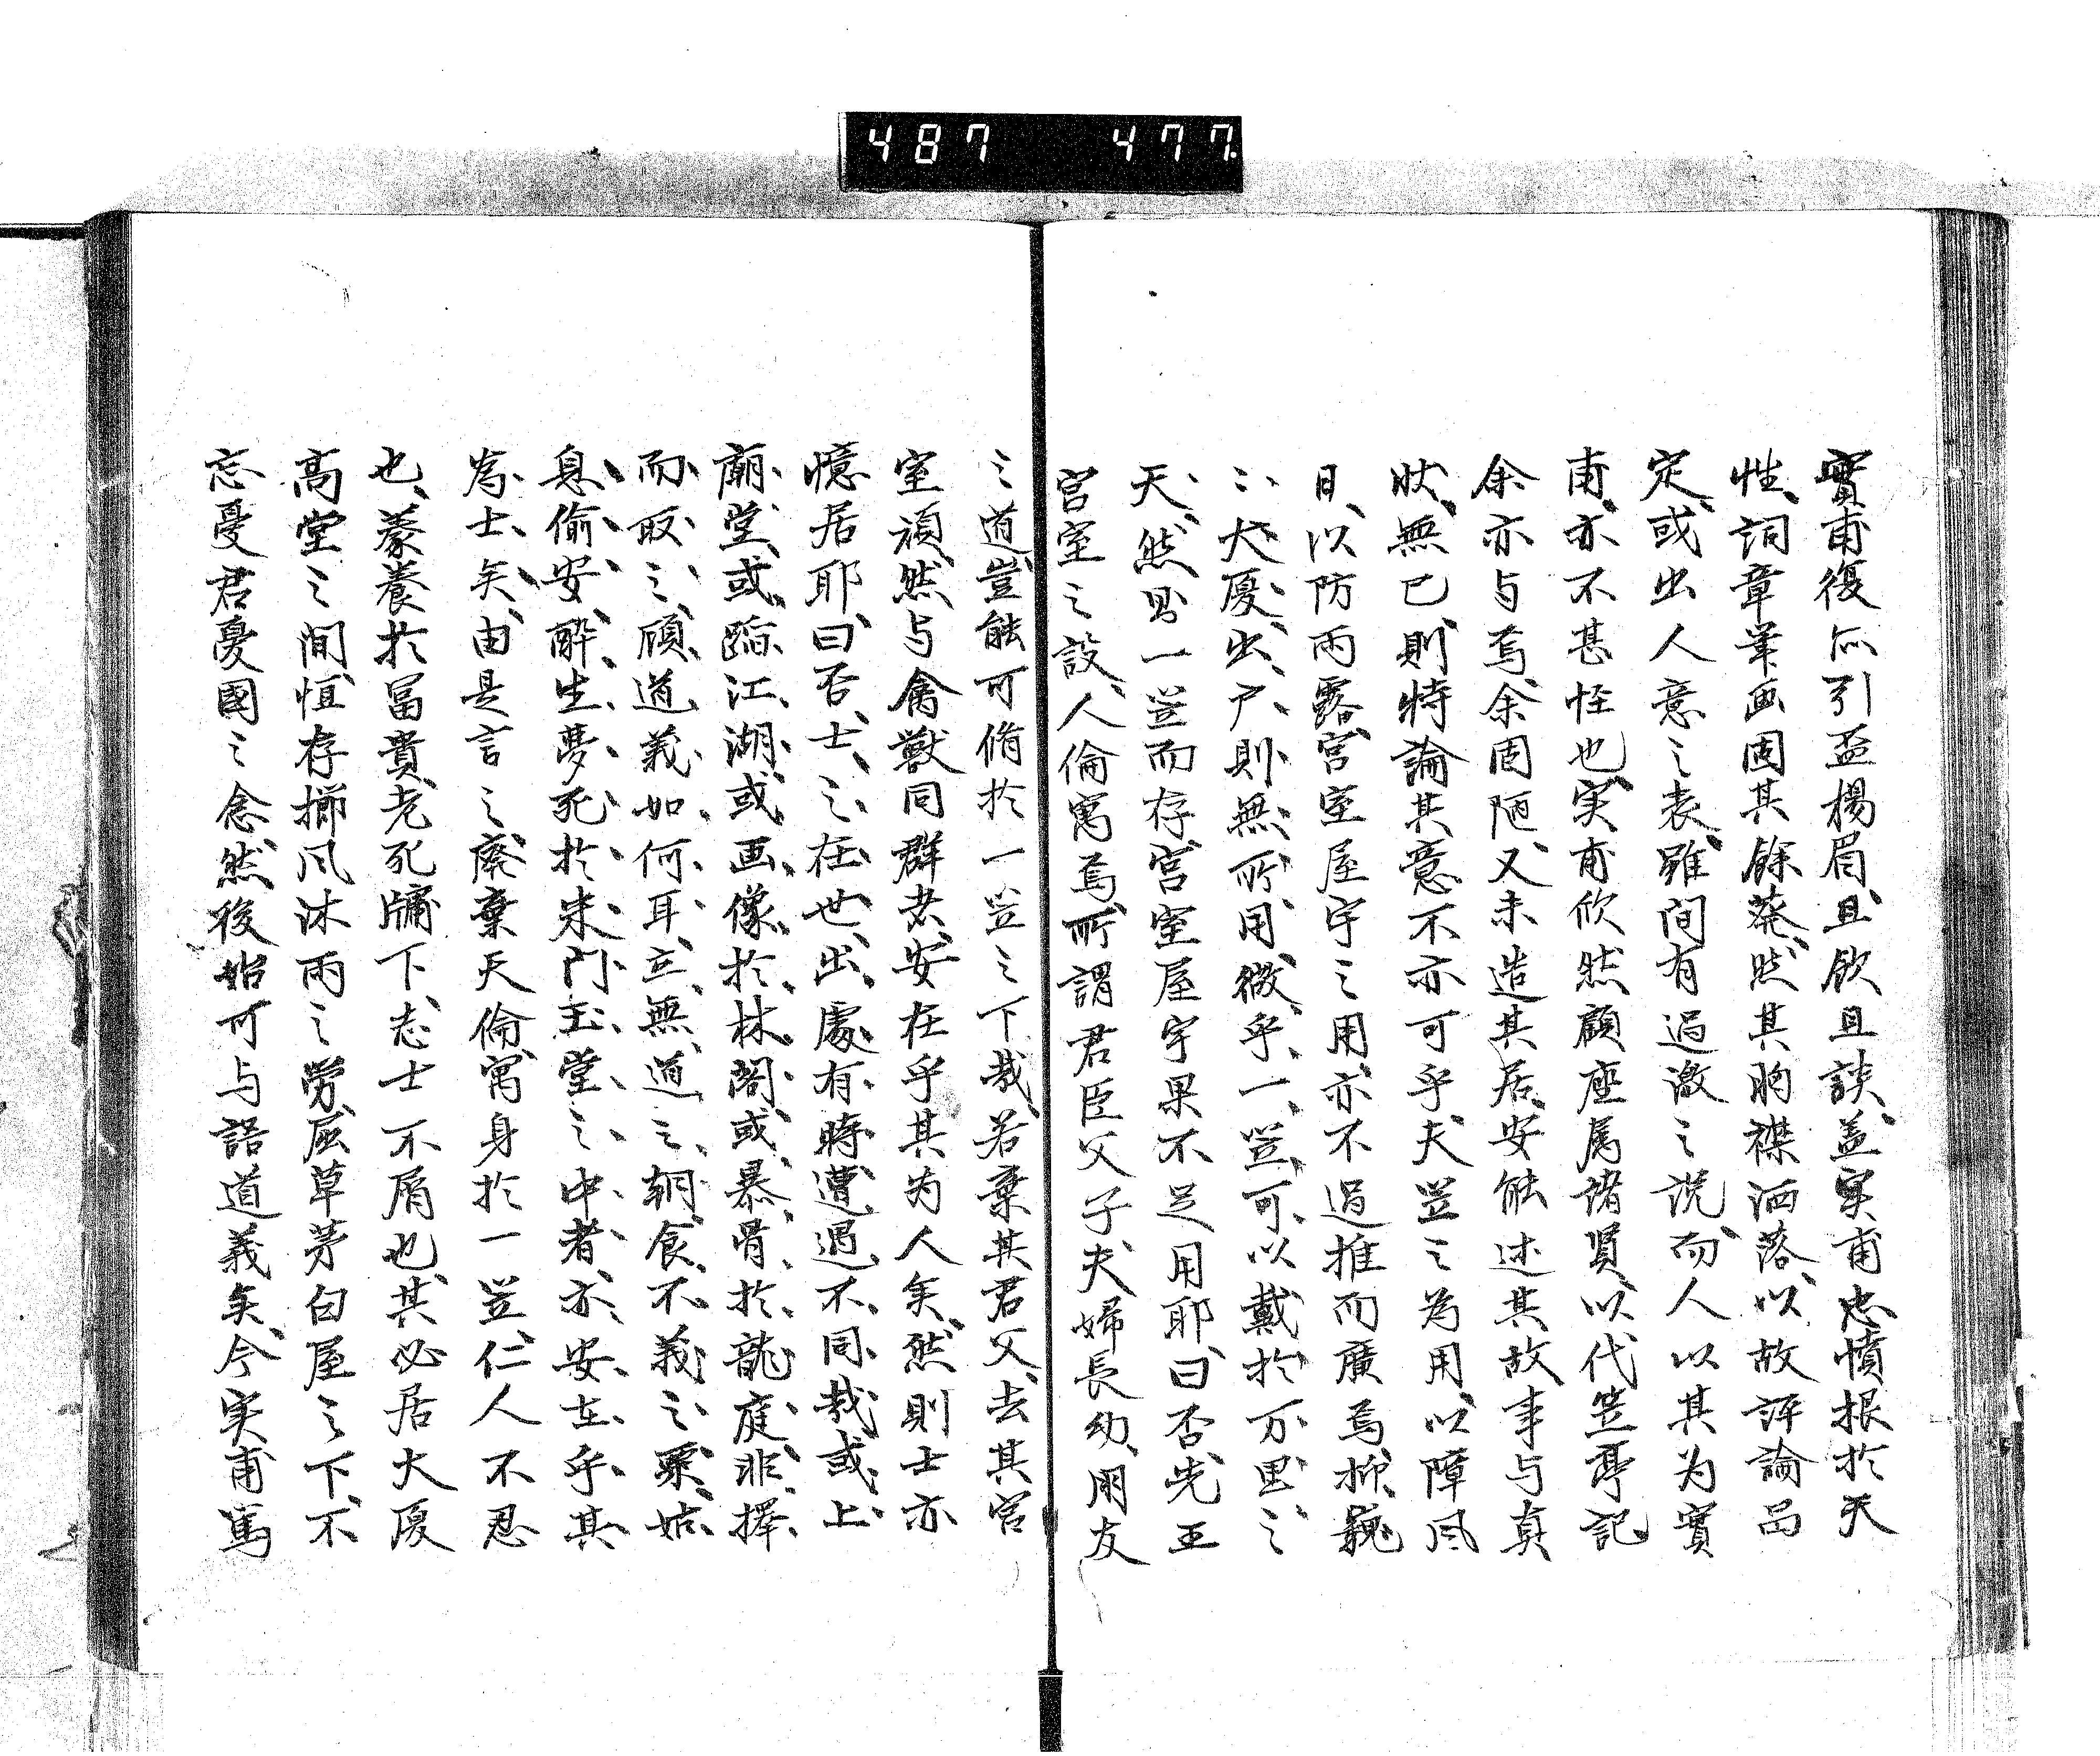 487 477
實甫復亦引盃揚眉、且飲且談、盖実甫忠憤根於天
性、詞章筆画固其餘蔡、然其胸襟洒落、以故評論品
定、或出人意之表、雖间有過激之説、而人以其为實
甫、亦不甚怪也、実甫欣然顧座属諸賢、以代笠亭記
余亦与焉、余固陋、又未造其居、安能述其故事与真
状、無已、則特論其意不亦可乎、夫笠之為用、以障風
日、以防雨露、宮室屋宇之用、亦不過推而廣焉、抑巍
〻大厦、出户則無所用、微乎一笠、可以戴於万里之
天、然則一笠而存、宮室屋宇果不足用耶、曰否、先王
宮室之設、人倫寓焉、所謂君臣父子、夫婦長幼、朋友
之道、豈能可脩於一笠之下哉、若棄其君父、去其宮
室、頑然与禽獣同群者、安在乎其为人矣、然則士亦
懐居耶、曰否、士之在世、出處有時、遭遇不同哉、或上
廟堂、或蹈江湖、或画像於林閣、或暴骨於龍庭、非擇
而取之、顧道義如何耳、立無道之朝、食不義之粟、姑
息偷安、酔生夢死於朱門玉堂之中者、亦安在乎其
為士矣、由是言之、廃棄天倫、寓身於一笠、仁人不忍
也、豢養於冨貴、老死牖下、志士不屑也、其必居大厦
高堂之间、恒存擳风沐雨之労、屈草茅白屋之下、不
忘憂君憂國之念、然後始可与語道義矣、今実甫篤